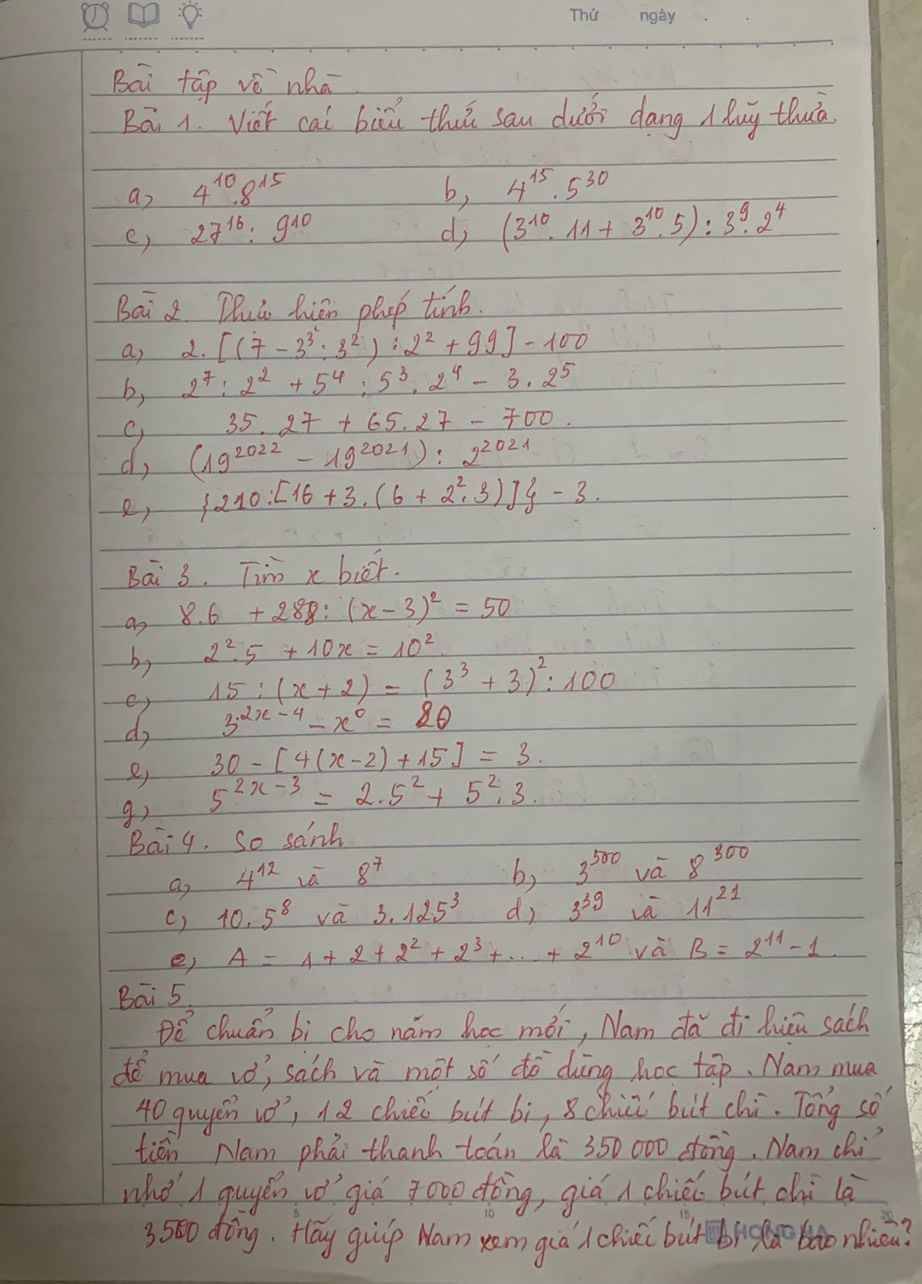 Thứ ngày
Bài tập về nhà
Bài 1. Viết cái biểu thức sau dưới dạng 1 luỹ thừa.
a, 4^10.8^15 b, 4^15.5^30
c, 27^16 : 9^10 d, (3^10.11 + 3^10.5) : 3^9.2^4
Bài 2 Thực hiện phép tính.
a, 2.[(7 - 3^3 : 3^2) : 2^2 + 99] - 100
b, 2^7 : 2^2 + 5^4 : 5^3 . 2^4 - 3.2^5
c, 35.27 + 65.27 - 700.
d, (19^2022 - 19^2021) : 2^2021
e, {210:[16 + 3.(6 + 2^2.3)]} - 3.
Bài 3. Tìm x biết.
a, 8.6 + 288 : (x - 3)^2 = 50
b, 2^2.5 + 10x = 10^2.
c, 15 : (x + 2) = (3^3 + 3)^2 : 100
d, 3^2x-4 - x^0 = 80
e, 30 - [4(x - 2) + 15] = 3.
g, 5^2x-3 = 2.5^2 + 5^2.3.
Bài 4. So sánh
a, 4^12 và 8^7 b, 3^500 và 8^300
c, 10.5^8 và 3.125^3 d, 3^39 và 11^21
e, A = 1 + 2 + 2^2 + 2^3 + ... + 2^10 và B = 2^11 - 1.
Bài 5.
Để chuẩn bị cho năm học mới, Nam đã đi hiệu sách
để mua vở, sách và một số đồ dùng học tập. Nam mua
40 quyển vở, 12 chiếc bút bi, 8 chiếc bút chì. Tổng số
tiền Nam phải thanh toán là 350 000 đồng. Nam chỉ
nhớ 1 quyển vở giá 7000 đồng, giá 1 chiếc bút chì là
3500 đồng. Hãy giúp Nam xem giá 1 chiếc bút bi là bao nhiêu?
HONG HA